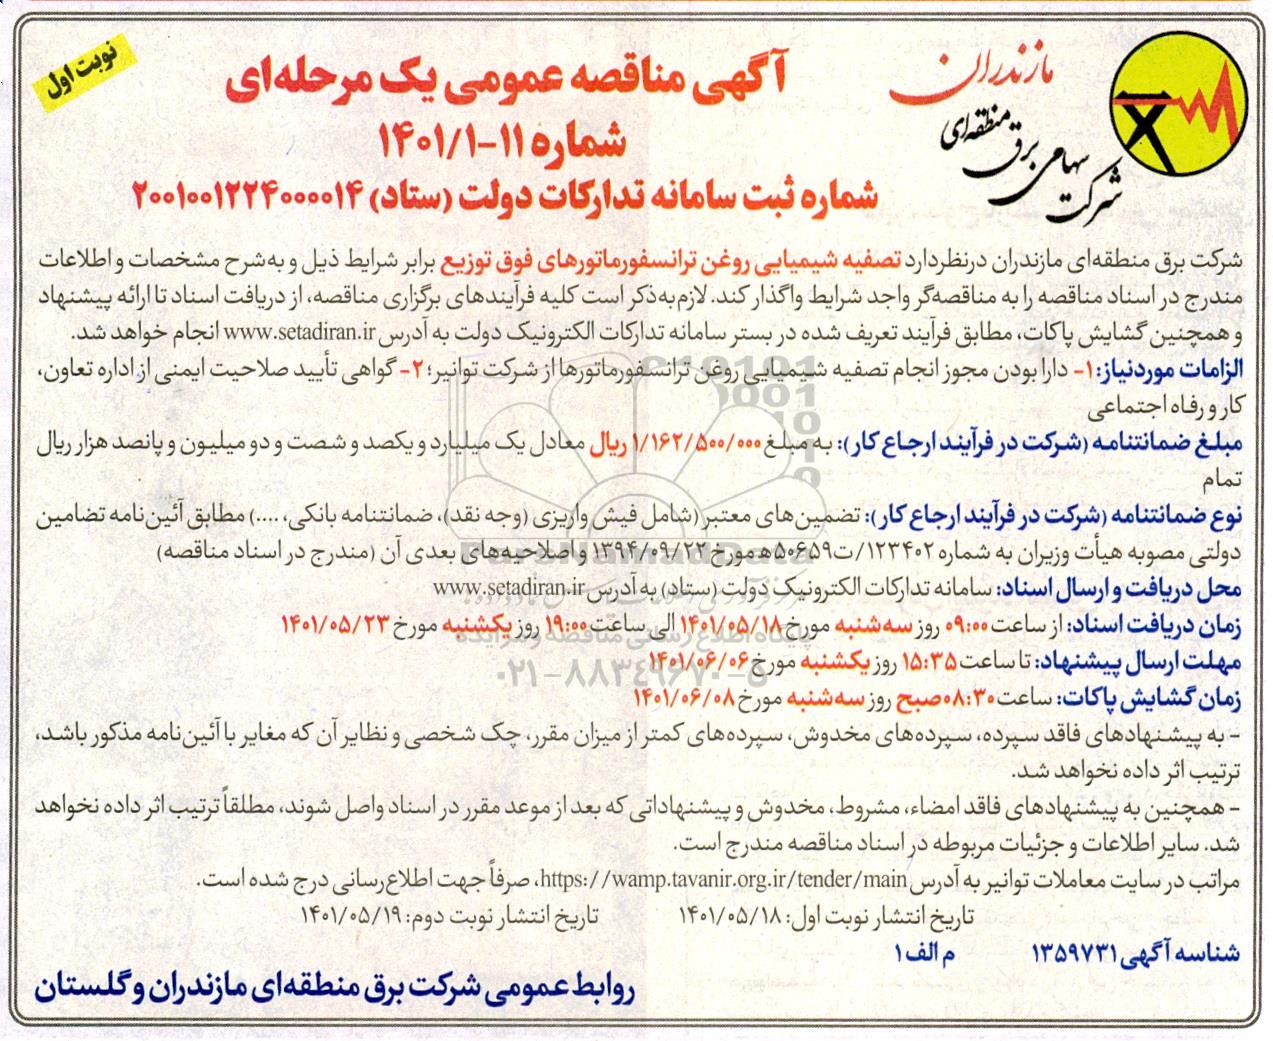 نوبت اول
مازندران
شرکت سهامی برق منطقه‌ای
آگهی مناقصه عمومی یک مرحله‌ای
شماره ۱۱-۱۴۰۱/۱
شماره ثبت سامانه تدارکات دولت (ستاد) ۲۰۰۱۰۰۱۲۲۴۰۰۰۰۱۴
شرکت برق منطقه‌ای مازندران درنظردارد تصفیه شیمیایی روغن ترانسفورماتورهای فوق توزیع برابر شرایط ذیل و به‌شرح مشخصات و اطلاعات
مندرج در اسناد مناقصه را به مناقصه‌گر واجد شرایط واگذار کند. لازم‌به‌ذکر است کلیه فرآیندهای برگزاری مناقصه، از دریافت اسناد تا ارائه پیشنهاد
و همچنین گشایش پاکات، مطابق فرآیند تعریف شده در بستر سامانه تدارکات الکترونیک دولت به آدرس www.setadiran.ir انجام خواهد شد.
الزامات موردنیاز: ۱- دارا بودن مجوز انجام تصفیه شیمیایی روغن ترانسفورماتورها از شرکت توانیر؛ ۲- گواهی تأیید صلاحیت ایمنی از اداره تعاون،
کار و رفاه اجتماعی
مبلغ ضمانتنامه (شرکت در فرآیند ارجاع کار): به مبلغ ۱/۱۶۲/۵۰۰/۰۰۰ ریال معادل یک میلیارد و یکصد و شصت و دو میلیون و پانصد هزار ریال
تمام
نوع ضمانتنامه (شرکت در فرآیند ارجاع کار): تضمین‌های معتبر (شامل فیش واریزی (وجه نقد)، ضمانتنامه بانکی، ....) مطابق آئین‌نامه تضامین
دولتی مصوبه هیأت وزیران به شماره ۱۲۳۴۰۲/ت۵۰۶۵۹ه مورخ ۱۳۹۴/۰۹/۲۲ و اصلاحیه‌های بعدی آن (مندرج در اسناد مناقصه)
محل دریافت و ارسال اسناد: سامانه تدارکات الکترونیک دولت (ستاد) به آدرس www.setadiran.ir
زمان دریافت اسناد: از ساعت ۰۹:۰۰ روز سه‌شنبه مورخ ۱۴۰۱/۰۵/۱۸ الی ساعت ۱۹:۰۰ روز یکشنبه مورخ ۱۴۰۱/۰۵/۲۳
مهلت ارسال پیشنهاد: تا ساعت ۱۵:۳۵ روز یکشنبه مورخ ۱۴۰۱/۰۶/۰۶
زمان گشایش پاکات: ساعت ۰۸:۳۰ صبح روز سه‌شنبه مورخ ۱۴۰۱/۰۶/۰۸
- به پیشنهادهای فاقد سپرده، سپرده‌های مخدوش، سپرده‌های کمتر از میزان مقرر، چک شخصی و نظایر آن که مغایر با آئین‌نامه مذکور باشد،
ترتیب اثر داده نخواهد شد.
- همچنین به پیشنهادهای فاقد امضاء، مشروط، مخدوش و پیشنهاداتی که بعد از موعد مقرر در اسناد واصل شوند، مطلقاً ترتیب اثر داده نخواهد
شد. سایر اطلاعات و جزئیات مربوطه در اسناد مناقصه مندرج است.
مراتب در سایت معاملات توانیر به آدرس https://wamp.tavanir.org.ir/tender/main، صرفاً جهت اطلاع‌رسانی درج شده است.
تاریخ انتشار نوبت اول: ۱۴۰۱/۰۵/۱۸ تاریخ انتشار نوبت دوم: ۱۴۰۱/۰۵/۱۹
شناسه آگهی ۱۳۵۹۷۳۱ م الف ۱
روابط عمومی شرکت برق منطقه‌ای مازندران و گلستان
ParsNamadData
پایگاه اطلاع رسانی مناقصه و مزایده
۰۲۱-۸۸۳۴۹۶۷۰-۵